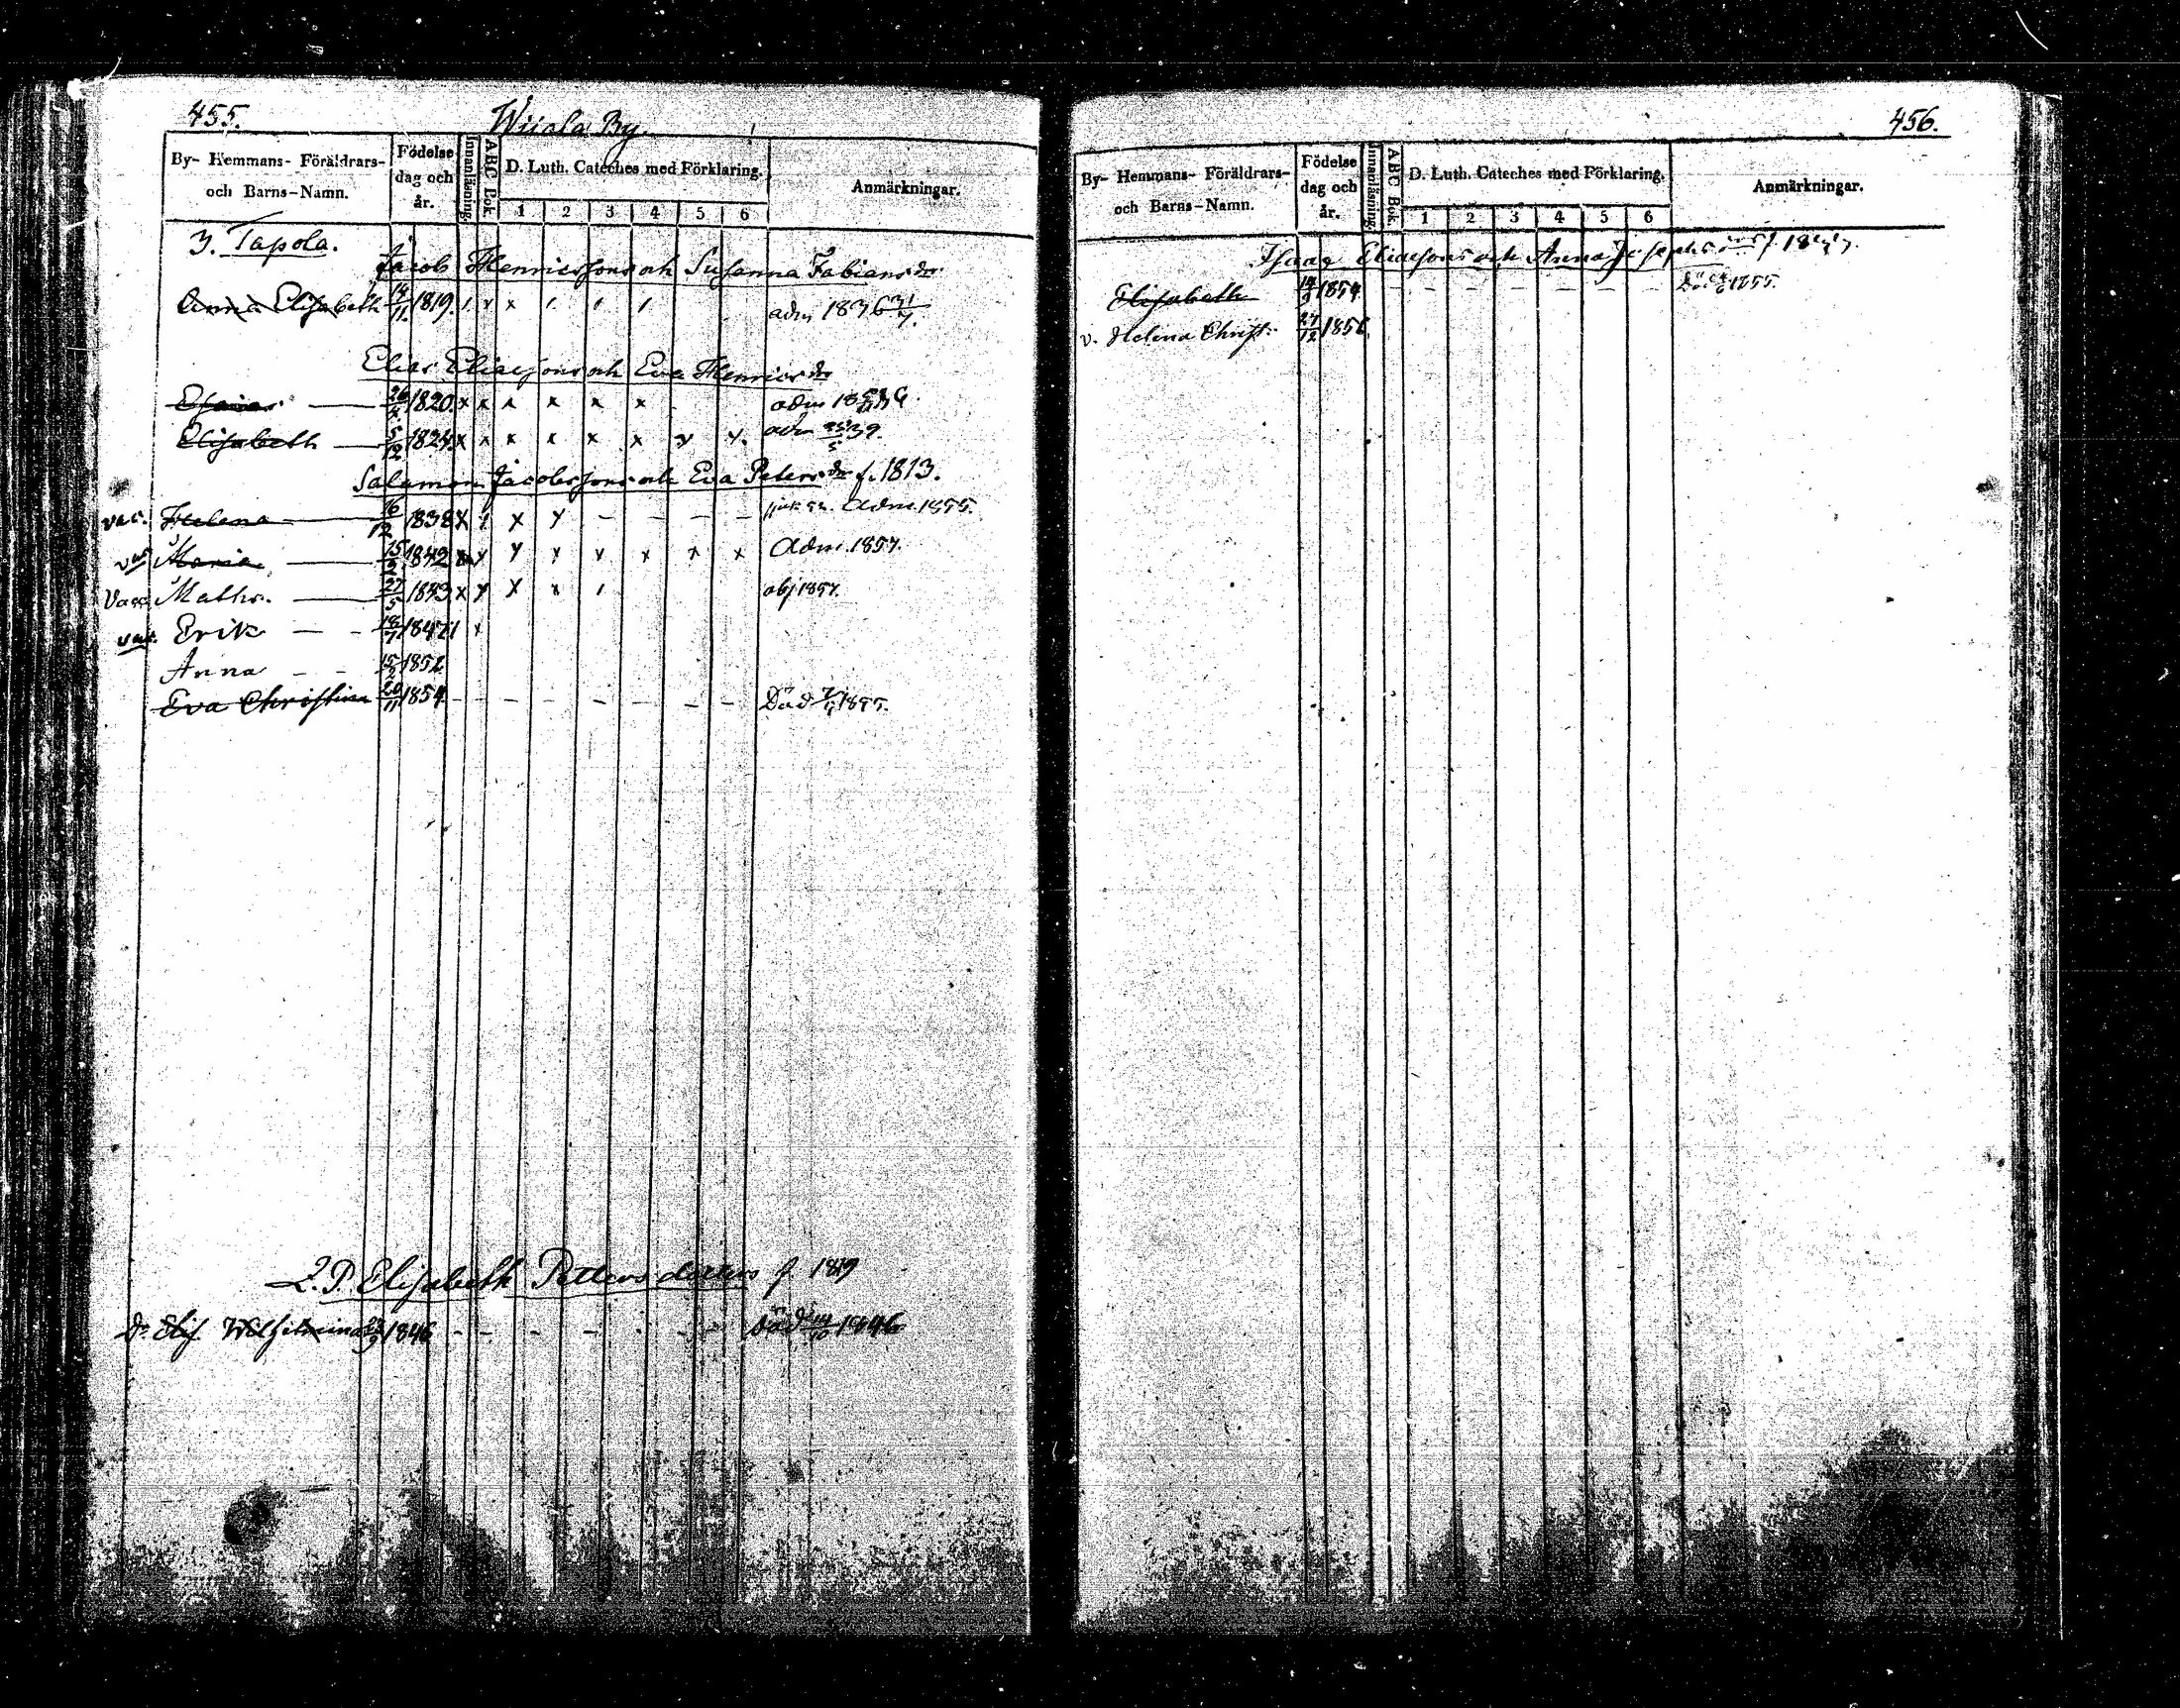 455.
Wiiala By.
By- Hemmans- Föräldrars- och Barns-Namn.
Födelse dag och år.
Innanläsning.
ABC Bok.
D. Luth. Cateches med Förklaring.
1 2 3 4 5 6
Anmärkningar.
3. Tapola.
Jacob Henricssons och Susanna Fabiansdr
Anna Elisabeth 14/11 1819. adm 1836 31/7.
Elias Eliaesons och Eva Henricsdr
Esaias 1820. x x x x x x adm
Elisabeth 5/12 1824 x x x x x x y y. adm 39.
Salamon Jacobssons och Eva Petersdr f. 1813.
vac. Helena 16/12 1838 adm. 1855.
vac Maria 15/2 1842 Adm. 1857.
Vacc Maths. 27/5 1843 x y x x obj 1857.
vac. Erik 18/7 1847
Anna 15/2 1852
Eva Christina 20/11 1854 Död 1855.
2. P. Elisabeth Pettersdotters f. 1819
Dr. Elis. Wilhelmina 1846 Död 1846
456.
By- Hemmans- Föräldrars- och Barns-Namn.
Födelse dag och år.
Innanläsning.
ABC Bok.
D. Luth. Cateches med Förklaring.
1 2 3 4 5 6
Anmärkningar.
Isaac Eliaesons och Anna Josephs
Elisabeth 1854 Död 1855.
v. Helena Christ: 27/12 1856